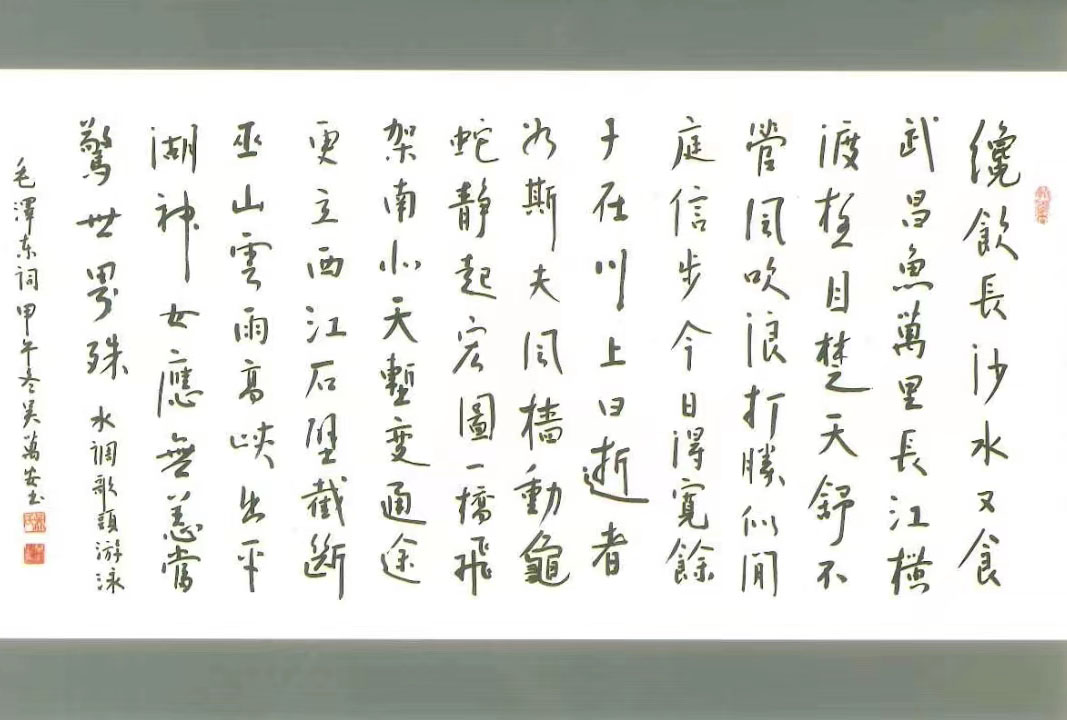 纔飲長沙水又食
武昌魚萬里長江横
渡極目楚天舒不
管風吹浪打勝似閒
庭信步今日得寬餘
子在川上曰逝者
如斯夫風檣動龜
蛇靜起宏圖一橋飛
架南北天塹變通途
更立西江石壁截斷
巫山雲雨高峽出平
湖神女應無恙當
驚世界殊 水調歌頭游泳
毛澤东詞甲午冬吴萬安书